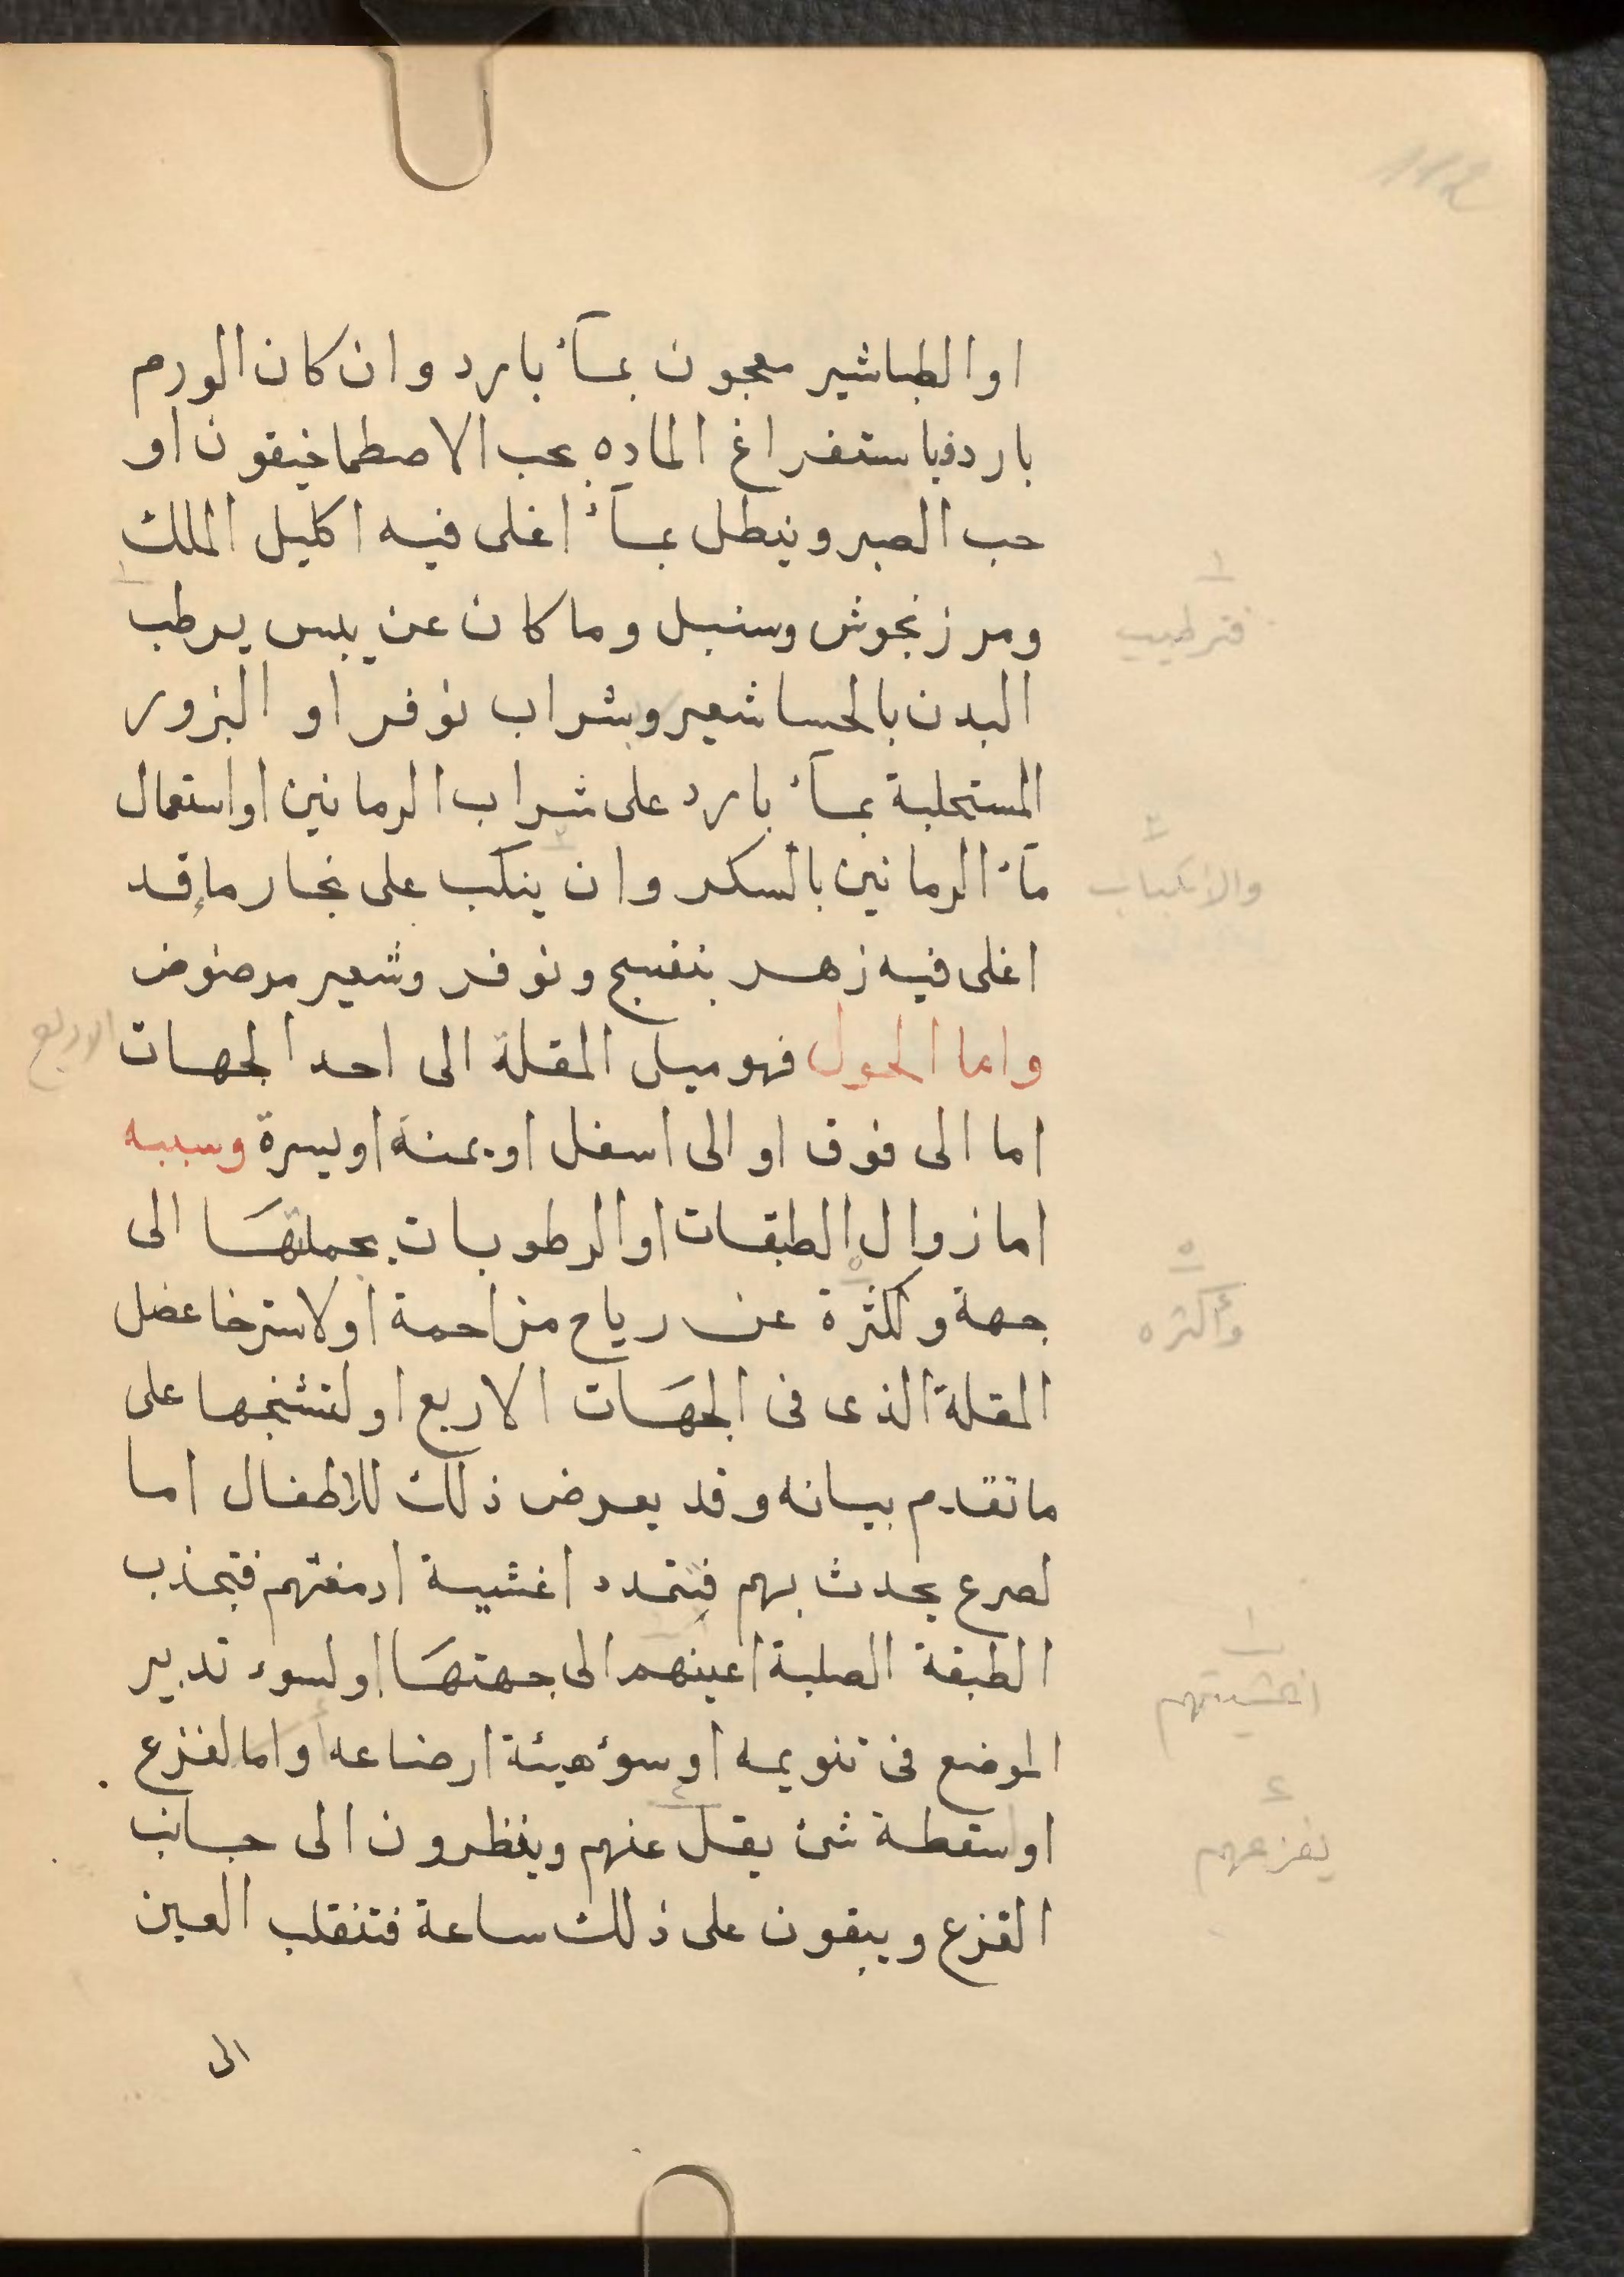 او الطباشير معجون بمآء بارد وان كان الورم
بارد فباستفراغ الماده بحب الاصطماخيقون او
حب الصبر وينطل بمآء اغلى فيه اكليل الملك
ومرزنجوش وسنبل وما كان عن يبس يرطب
فترطيب
البدن بالحسا شعير وشراب نوفر او البزور
المستحلبة بمآء بارد على شراب الرمانين او استعمال
مآء الرمانين بالسكر وان ينكب على بخار ماء قد
والانكباب
اغلى فيه زهر بنفسج ونوفر وشعير مرضوض
واما الحول فهو ميل المقلة الى احد الجهات
الاربع
اما الى فوق او الى اسفل او يمنة او يسرة وسببه
اما زوال الطبقات او الرطوبات بجملتها الى
جهة وكثرة عن رياح مزاحمة او لاسترخا عضل
وأكثره
المقلة الذى فى الجهات الاربع او لتشنجها على
ما تقدم بيانه وقد يعرض ذلك للاطفال اما
لصرع يحدث بهم فتتمدد اغشية ادمغتهم فتجذب
الطبقة الصلبة اعينهم الى جهتها او لسوء تدبير
اغشيتهم
الموضع فى تنويمه او سوء هيئة ارضاعه واما لفزع
او سقطة شئ يقل عنهم وينظرون الى جانب
يفزعهم
القزع ويبقون على ذلك ساعة فتنقلب العين
الى